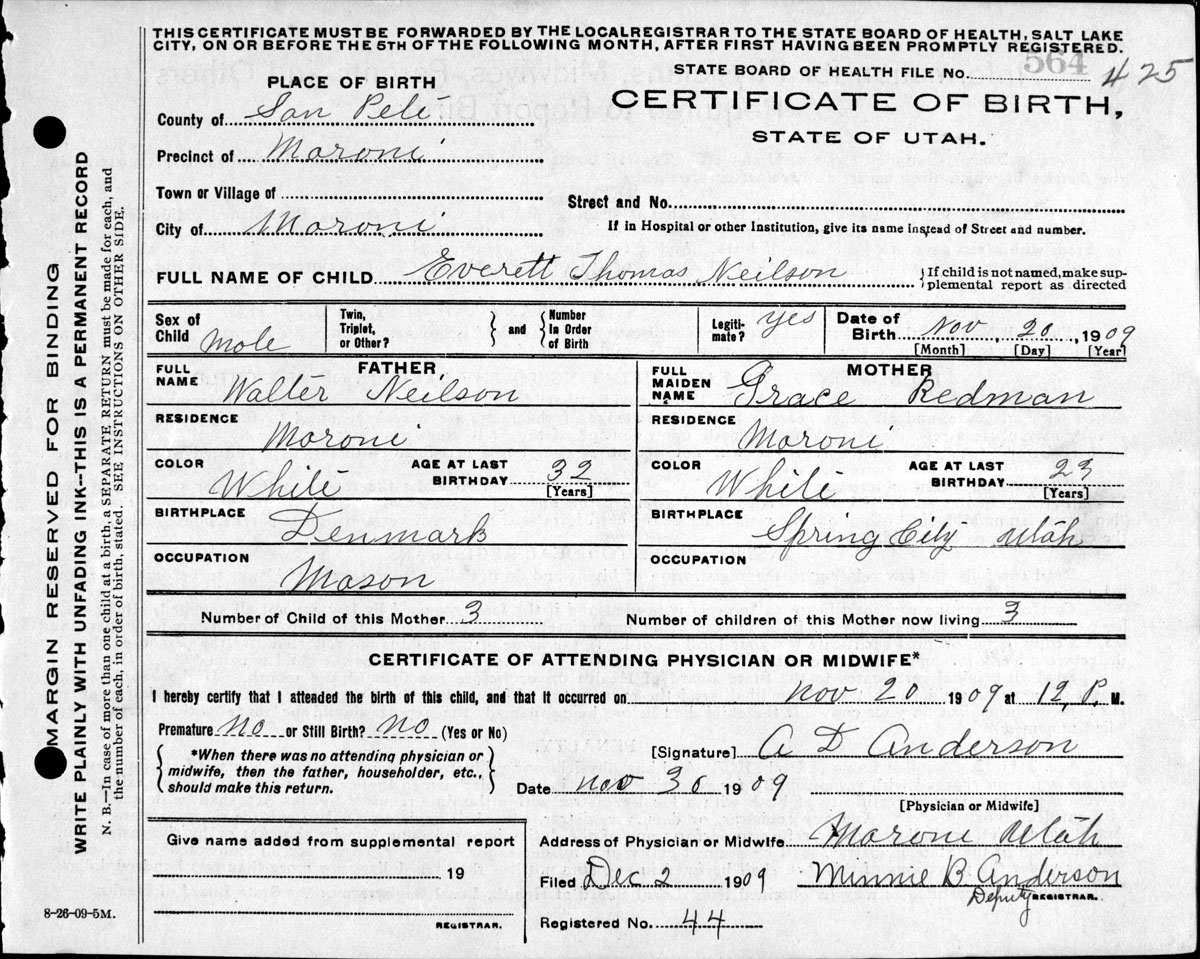 THIS CERTIFICATE MUST BE FORWARDED BY THE LOCALREGISTRAR TO THE STATE BOARD OF HEALTH, SALT LAKE
CITY, ON OR BEFORE THE 5TH OF THE FOLLOWING MONTH, AFTER FIRST HAVING BEEN PROMPTLY REGISTERED.
STATE BOARD OF HEALTH FILE No. 564 425
PLACE OF BIRTH
CERTIFICATE OF BIRTH,
STATE OF UTAH.
County of San Pete
Precinct of Moroni
Town or Village of
Street and No.
City of Moroni
If in Hospital or other Institution, give its name instead of Street and number.
FULL NAME OF CHILD Everett Thomas Neilson
} If child is not named, make sup-
plemental report as directed
Sex of Child Male
Twin, Triplet, or Other? } and { Number In Order of Birth
Legiti-mate? yes
Date of Birth Nov, 20, 1909
[Month] [Day] [Year]
FATHER
FULL NAME Walter Neilson
RESIDENCE Moroni
COLOR White AGE AT LAST BIRTHDAY 32 [Years]
BIRTHPLACE Denmark
OCCUPATION Mason
MOTHER
FULL MAIDEN NAME Grace Redman
RESIDENCE Moroni
COLOR White AGE AT LAST BIRTHDAY 23 [Years]
BIRTHPLACE Spring City Utah
OCCUPATION
Number of Child of this Mother 3 Number of children of this Mother now living 3
CERTIFICATE OF ATTENDING PHYSICIAN OR MIDWIFE*
I hereby certify that I attended the birth of this child, and that it occurred on Nov 20 1909 at 12, P. M.
Premature No or Still Birth? No (Yes or No)
{ *When there was no attending physician or
midwife, then the father, householder, etc.,
should make this return. }
[Signature] A D Anderson
Date Nov 30 1909
[Physician or Midwife]
Give name added from supplemental report
19
REGISTRAR.
Address of Physician or Midwife Moroni Utah
Filed Dec 2 1909 Minnie B Anderson
Deputy REGISTRAR.
Registered No. 44
8-26-09-5M.
MARGIN RESERVED FOR BINDING
WRITE PLAINLY WITH UNFADING INK--THIS IS A PERMANENT RECORD
N. B.—In case of more than one child at a birth, a SEPARATE RETURN must be made for each, and
the number of each, in order of birth, stated. SEE INSTRUCTIONS ON OTHER SIDE.